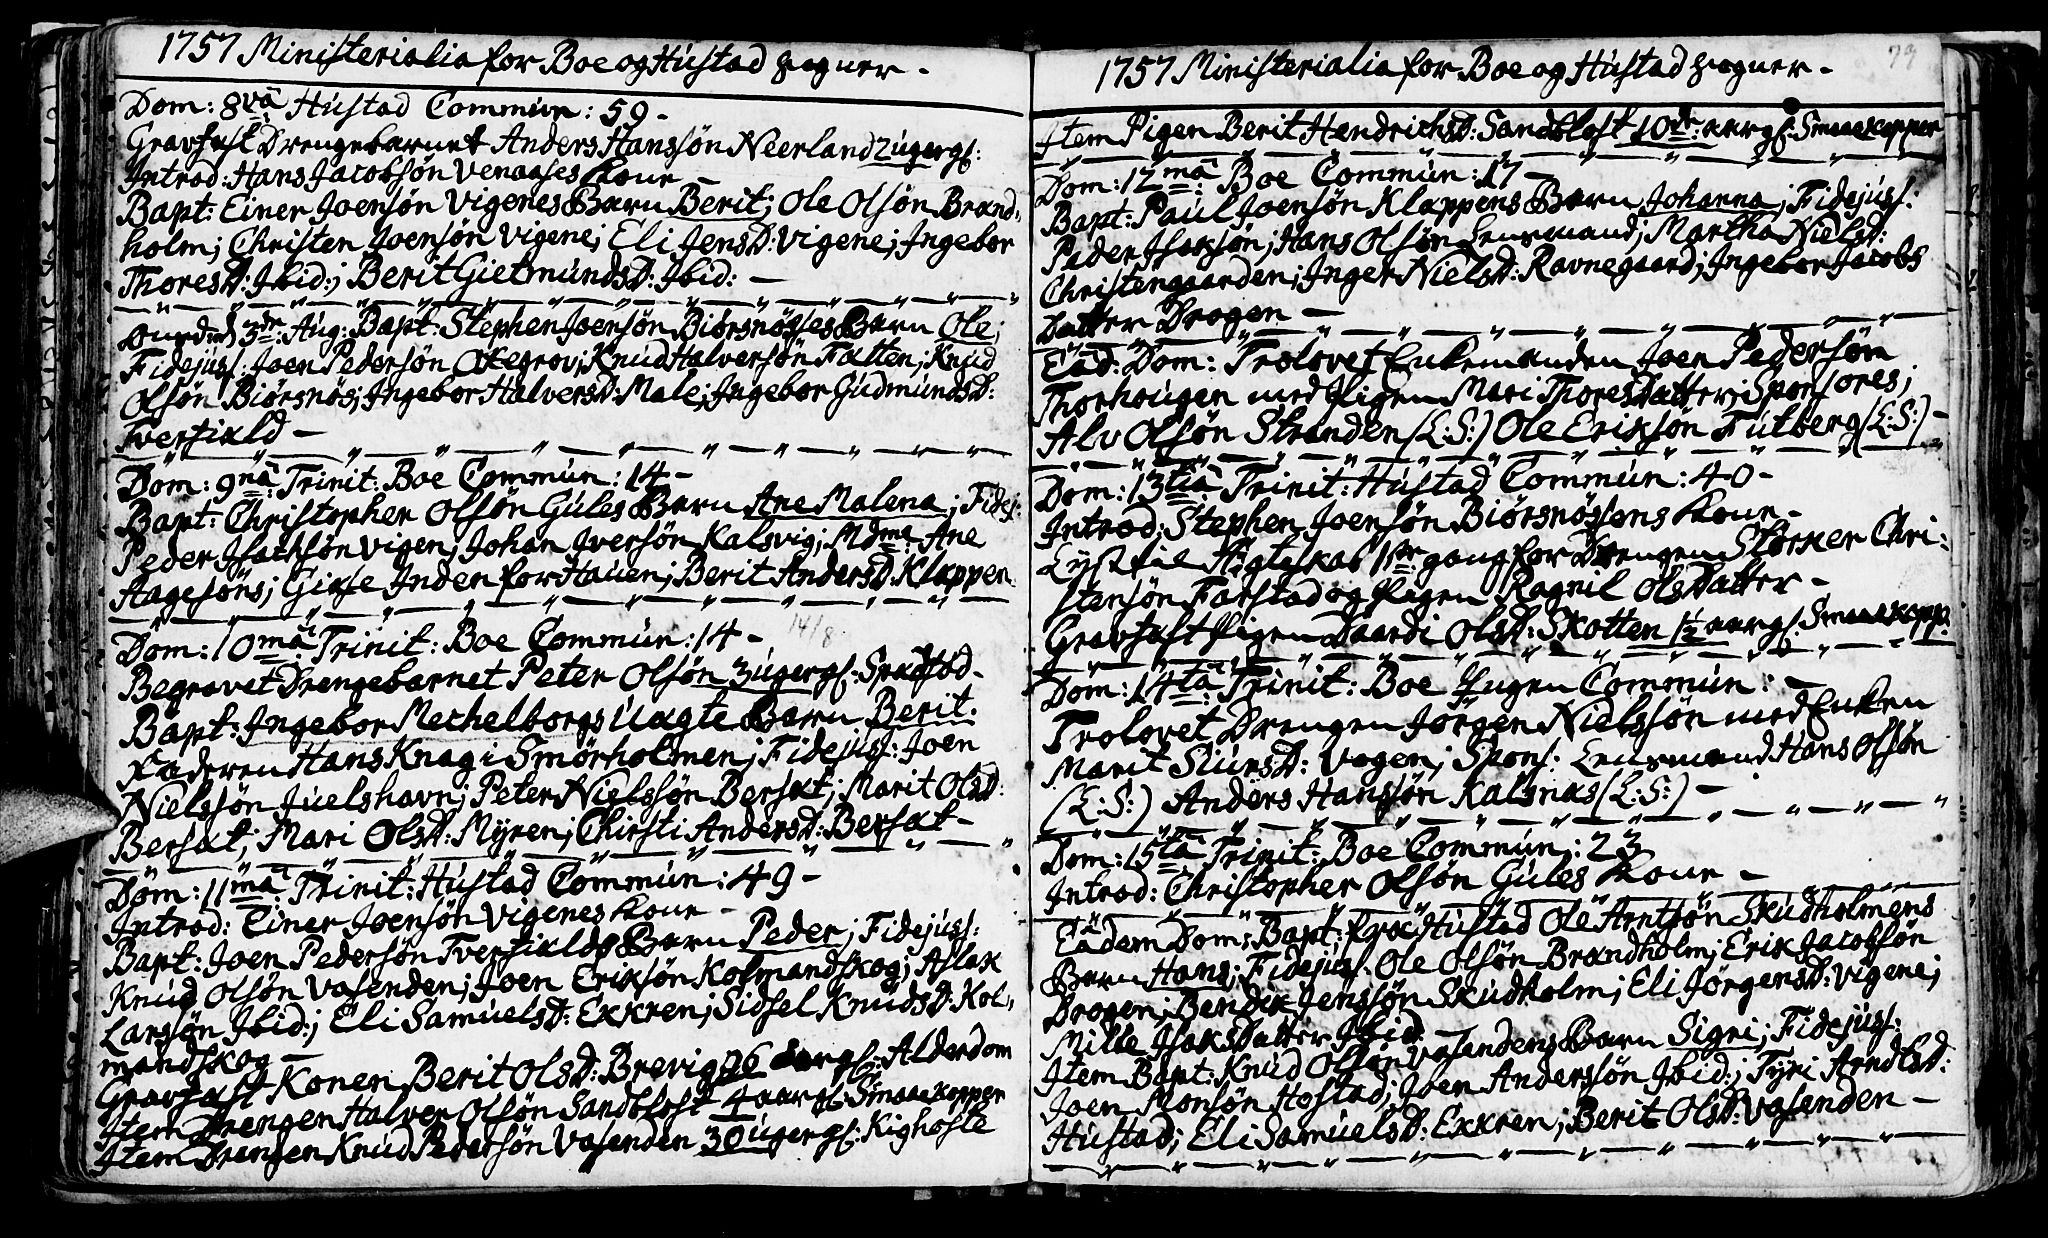 1757 Ministerialia for Boe og Hústad Sogner -
Dom: 8vâ Hústad Commún: 59 -
Gravfæst Drengebarnet Anders Hansøn Neerland 2úgergl:
Introd: Hans Jacobsøn Venaases Kone -
Bapt: Einer Joensøn Vigenes Barn Berit; Ole Olsøn Brand-
holm; Christen Joensøn Vigene; Eli JensD: Vigene; Ingebor
ThoresD: Ibid:; Berit GietmúndsD: Ibid: -
3de: Aúg: Bapt: Stephen Joensøn Biørsnøsses Barn Ole;
Fidejúss: Joen Pedersøn Oxegrov; Knúd Halversøn Fatten; Knúd
Olsøn Biørsnøs; Ingebor HalversD: Male; Ingebor GúdmúndsD:
Tverfiæld -
Dom: 9nâ Trinit: Boe Commún: 14 -
Bapt: Christopher Olsøn Gúles Barn Ane Malena; Fidej:
Peder Isachsøn Vigen; Johan Iversøn Kalsvig; Mdme: Ane
Hagesøns; Giøe Inden for Hauen; Berit AndersD: Klappen
Dom: 10mâ Trinit: Boe Commún: 14 - 14/8
Begravet Drengebarnet Peter Olsøn 3úgergl:
Bapt: Ingebor Mechelborgs úægte Barn Berit.
Faderen Hans Knag i Smørholmen; Fidejúss: Joen
Nielssøn Júelshavn; Peter Nielssøn Bersæt; Marit OlsD:
Bersæt; Mari OlsD: Myren; Chirsti AndersD: Bersæt -
Dom: 11mâ Trinit: Hústad Commún: 49 -
Introd: Einer Joensøn Vigenes Kone -
Bapt: Joen Pedersøn Tverfialds Barn Peder; Fidejúss:
Knúd Olsøn Vasenden; Joen Eriksøn Kolmandskog; Aslak
Larssøn Ibid:; Eli SamúelsD: Exkren; Sidsel KnúdsD: Kol-
mandskog -
Gravfæst Konen Berit OlsD: Brevig 96 aargl: Alderdom
Item Drengen Halver Olsøn Sandblost 4 aargl: Smaakopper
Item Drengen Knúd Pedersøn Vasenden 30 úgergl: Kighoste
1757 Ministerialia for Boe og Hústad Sogner -
Item Pigen Berit HendrichsD: Sandblost 10de aargl: Smaakopper
Dom: 12mâ: Boe Commún: 17 -
Bapt: Paúl Joensøn Klappens Barn Johanna; Fidejúss:
Peder Isaksøn; Hans Olsøn Lensmand; Martha NielsD:
Christengaarden; Inger NielsD: Ravnegaard; Ingebor Jacobs
Datter Drogen -
Eâd: Dom: Trolovet Enkemanden Joen Pedersøn
Thorhoúgen med Pigen Mari ThoresDatter; Sponsores;
Alv Olsøn Stranden (L:S:) Ole Eriksøn Fútberg (L:S:) -
Dom: 13tiâ Trinit: Hústad Commún: 40 -
Introd: Stephen Joensøn Biørsnøssens Kone -
Lyst til Ægteskab 1ste gang for Drengen Størker Chri-
stensøn Farstad og Pigen Ragnil OlsDatter -
Gravfæst Pigen Baardi OlsD: Skotten 1½ aargl: Smaakopp:
Dom: 14tâ Trinit: Boe Ingen Commún: -
Trolovet Drengen Jørgen Nielssøn med Enken
Marit SiúrsD: Vagen; Spons: Lensmand Hans Olsøn
(L:S:) Anders Hanssøn Kalsnæs (L:S:) -
Dom: 15tâ Trinit: Boe Commún: 23
Introd: Christopher Olsøn Gúles Kone -
Eâdem Dom: Bapt: fra Hústad Ole Arntsøn Skúdholmens
Barn Hans; Fidejúss: Ole Olsøn Brandholm; Erik Jacobsøn
Drogen; Bendix Jenssøn Skúdholm; Eli JørgensD: Vigene;
Mille IsaksDatter Ibid: -
Item Bapt: Knúd Olsøn Vasendens Barn Sigri; Fidejúss:
Joen Monsøn Hostad; Joen Anderssøn Ibid:; Tyri ArndtsD:
Hústad; Eli SamúelsD: Exkren; Berit OlsD: Vasenden -